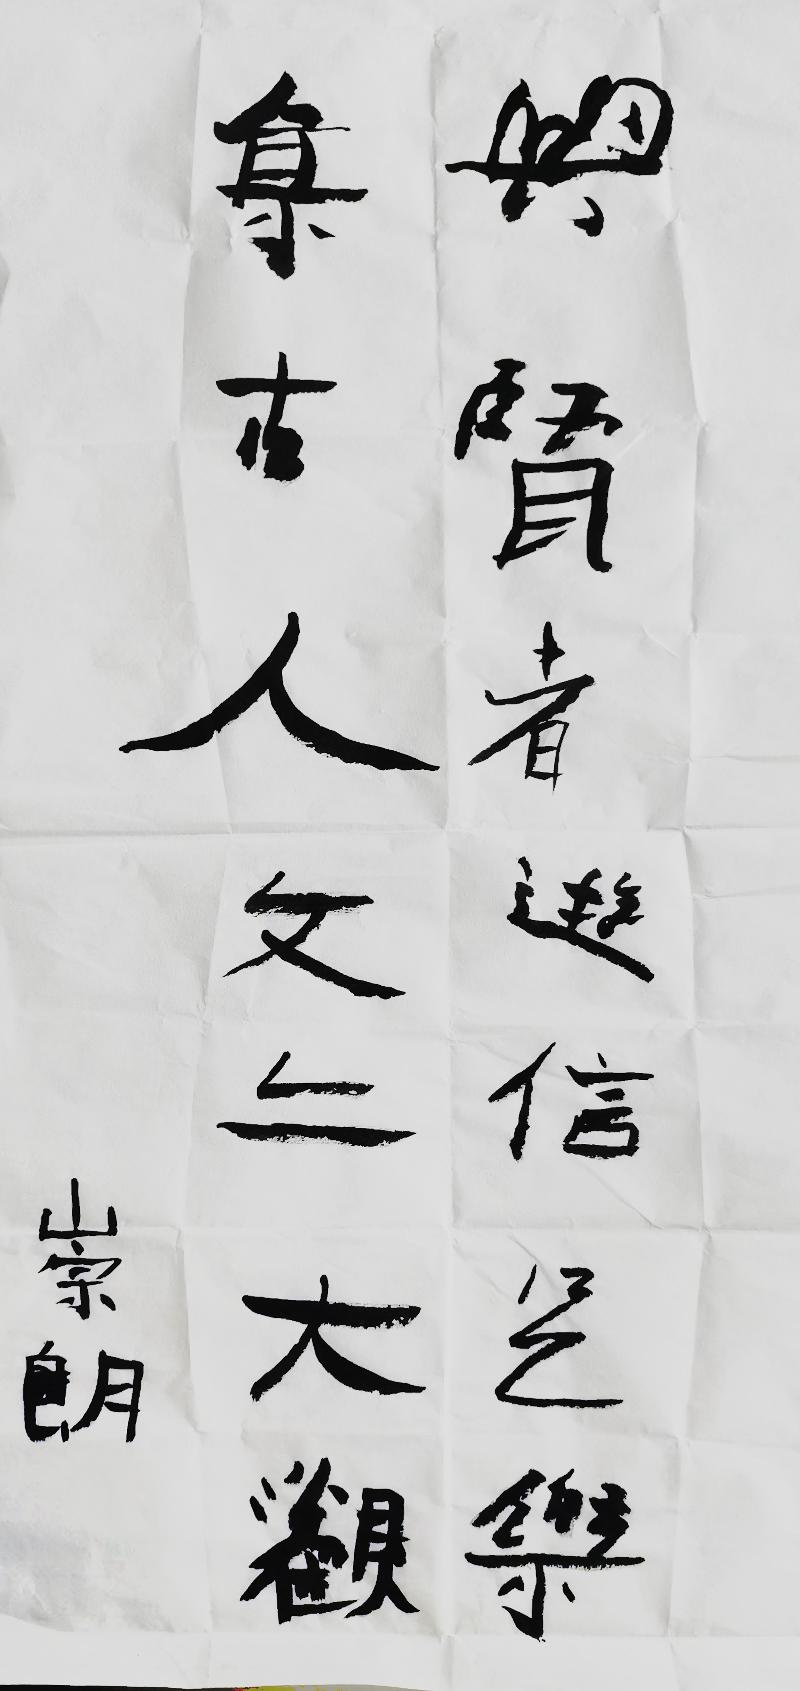 與賢者遊信足樂
集古人文亦大觀
崇朗